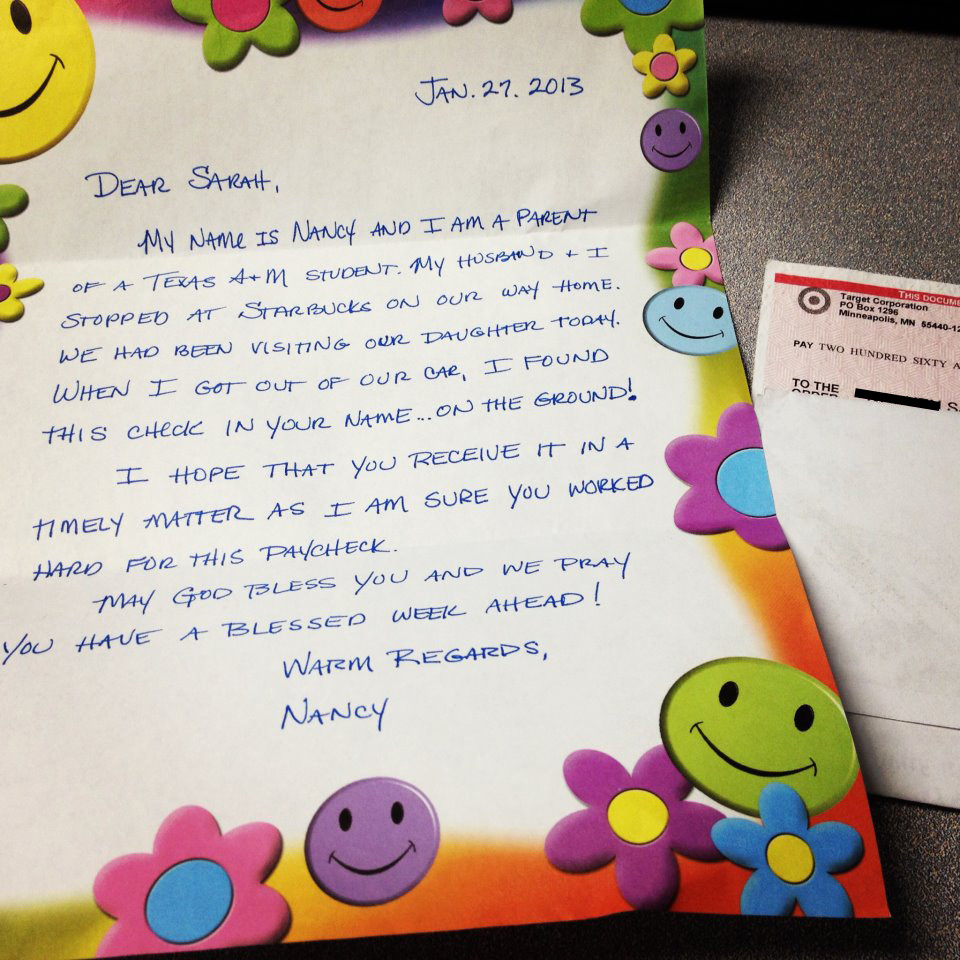 JAN. 27. 2013
DEAR SARAH,
MY NAME IS NANCY AND I AM A PARENT
OF A TEXAS A+M STUDENT. MY HUSBAND + I
STOPPED AT STARBUCKS ON OUR WAY HOME.
WE HAD BEEN VISITING OUR DAUGHTER TODAY.
WHEN I GOT OUT OF OUR CAR, I FOUND
THIS CHECK IN YOUR NAME...ON THE GROUND!
I HOPE THAT YOU RECEIVE IT IN A
TIMELY MATTER AS I AM SURE YOU WORKED
HARD FOR THIS PAYCHECK.
MAY GOD BLESS YOU AND WE PRAY
YOU HAVE A BLESSED WEEK AHEAD!
WARM REGARDS,
NANCY
THIS DOCUME
Target Corporation
PO Box 1296
Minneapolis, MN 55440-12
PAY TWO HUNDRED SIXTY A
TO THE
ORDER S